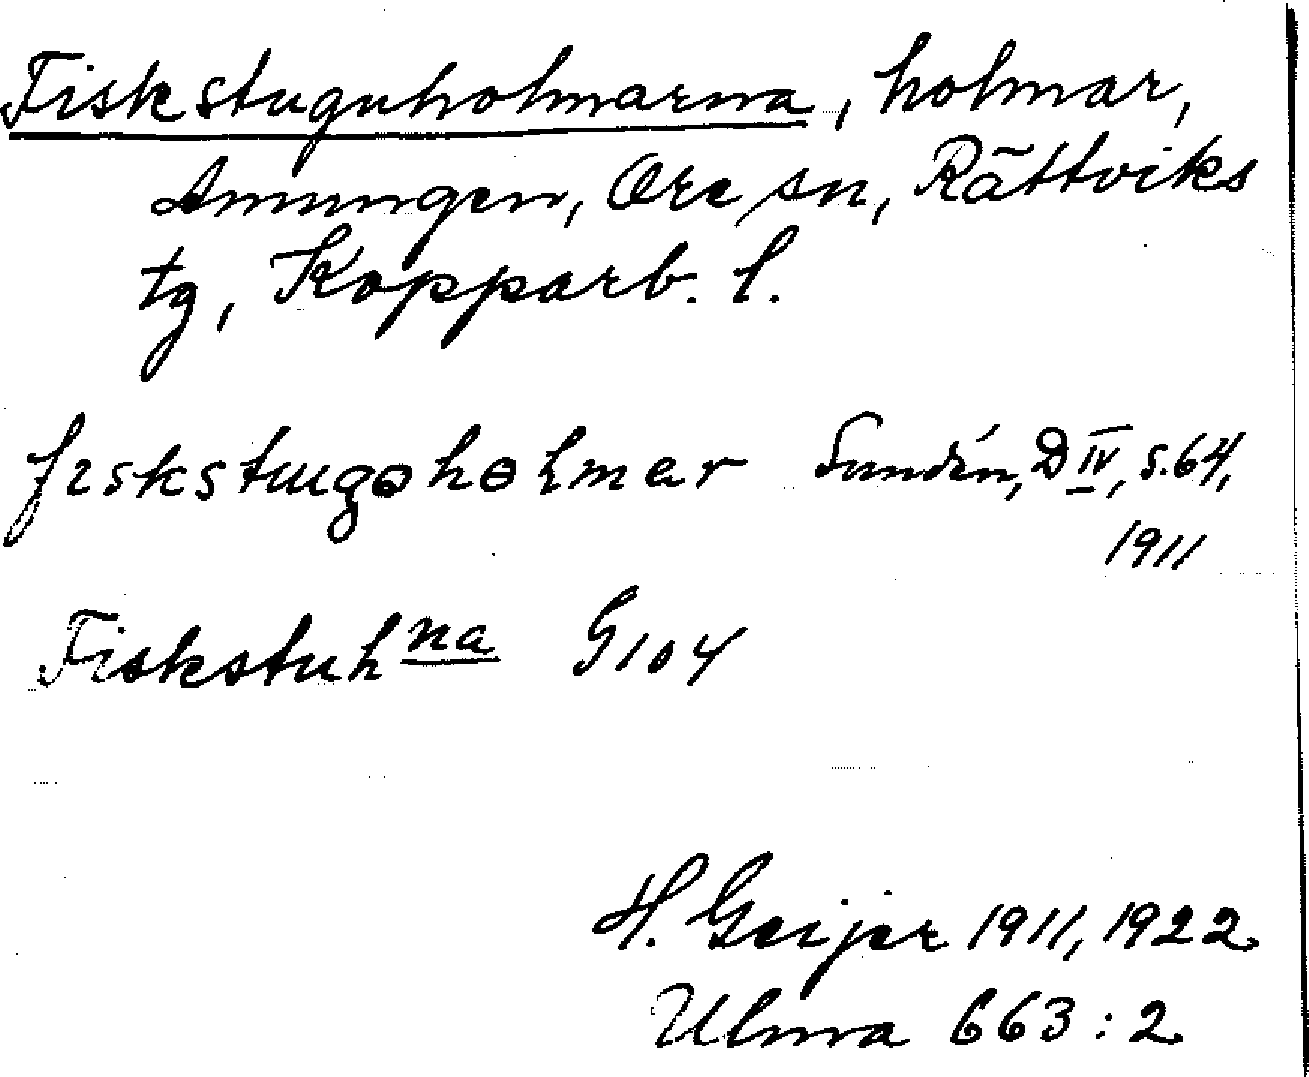 Fiskstuguholmarna, holmar,
Amungen, Ore sn, Rättviks
tg, Kopparb. l.
fiskstugoholmar Sundén, D IV, s. 64,
1911
Fiskstuhna G 104
H. Geijer 1911, 1922
Ulma 663:2